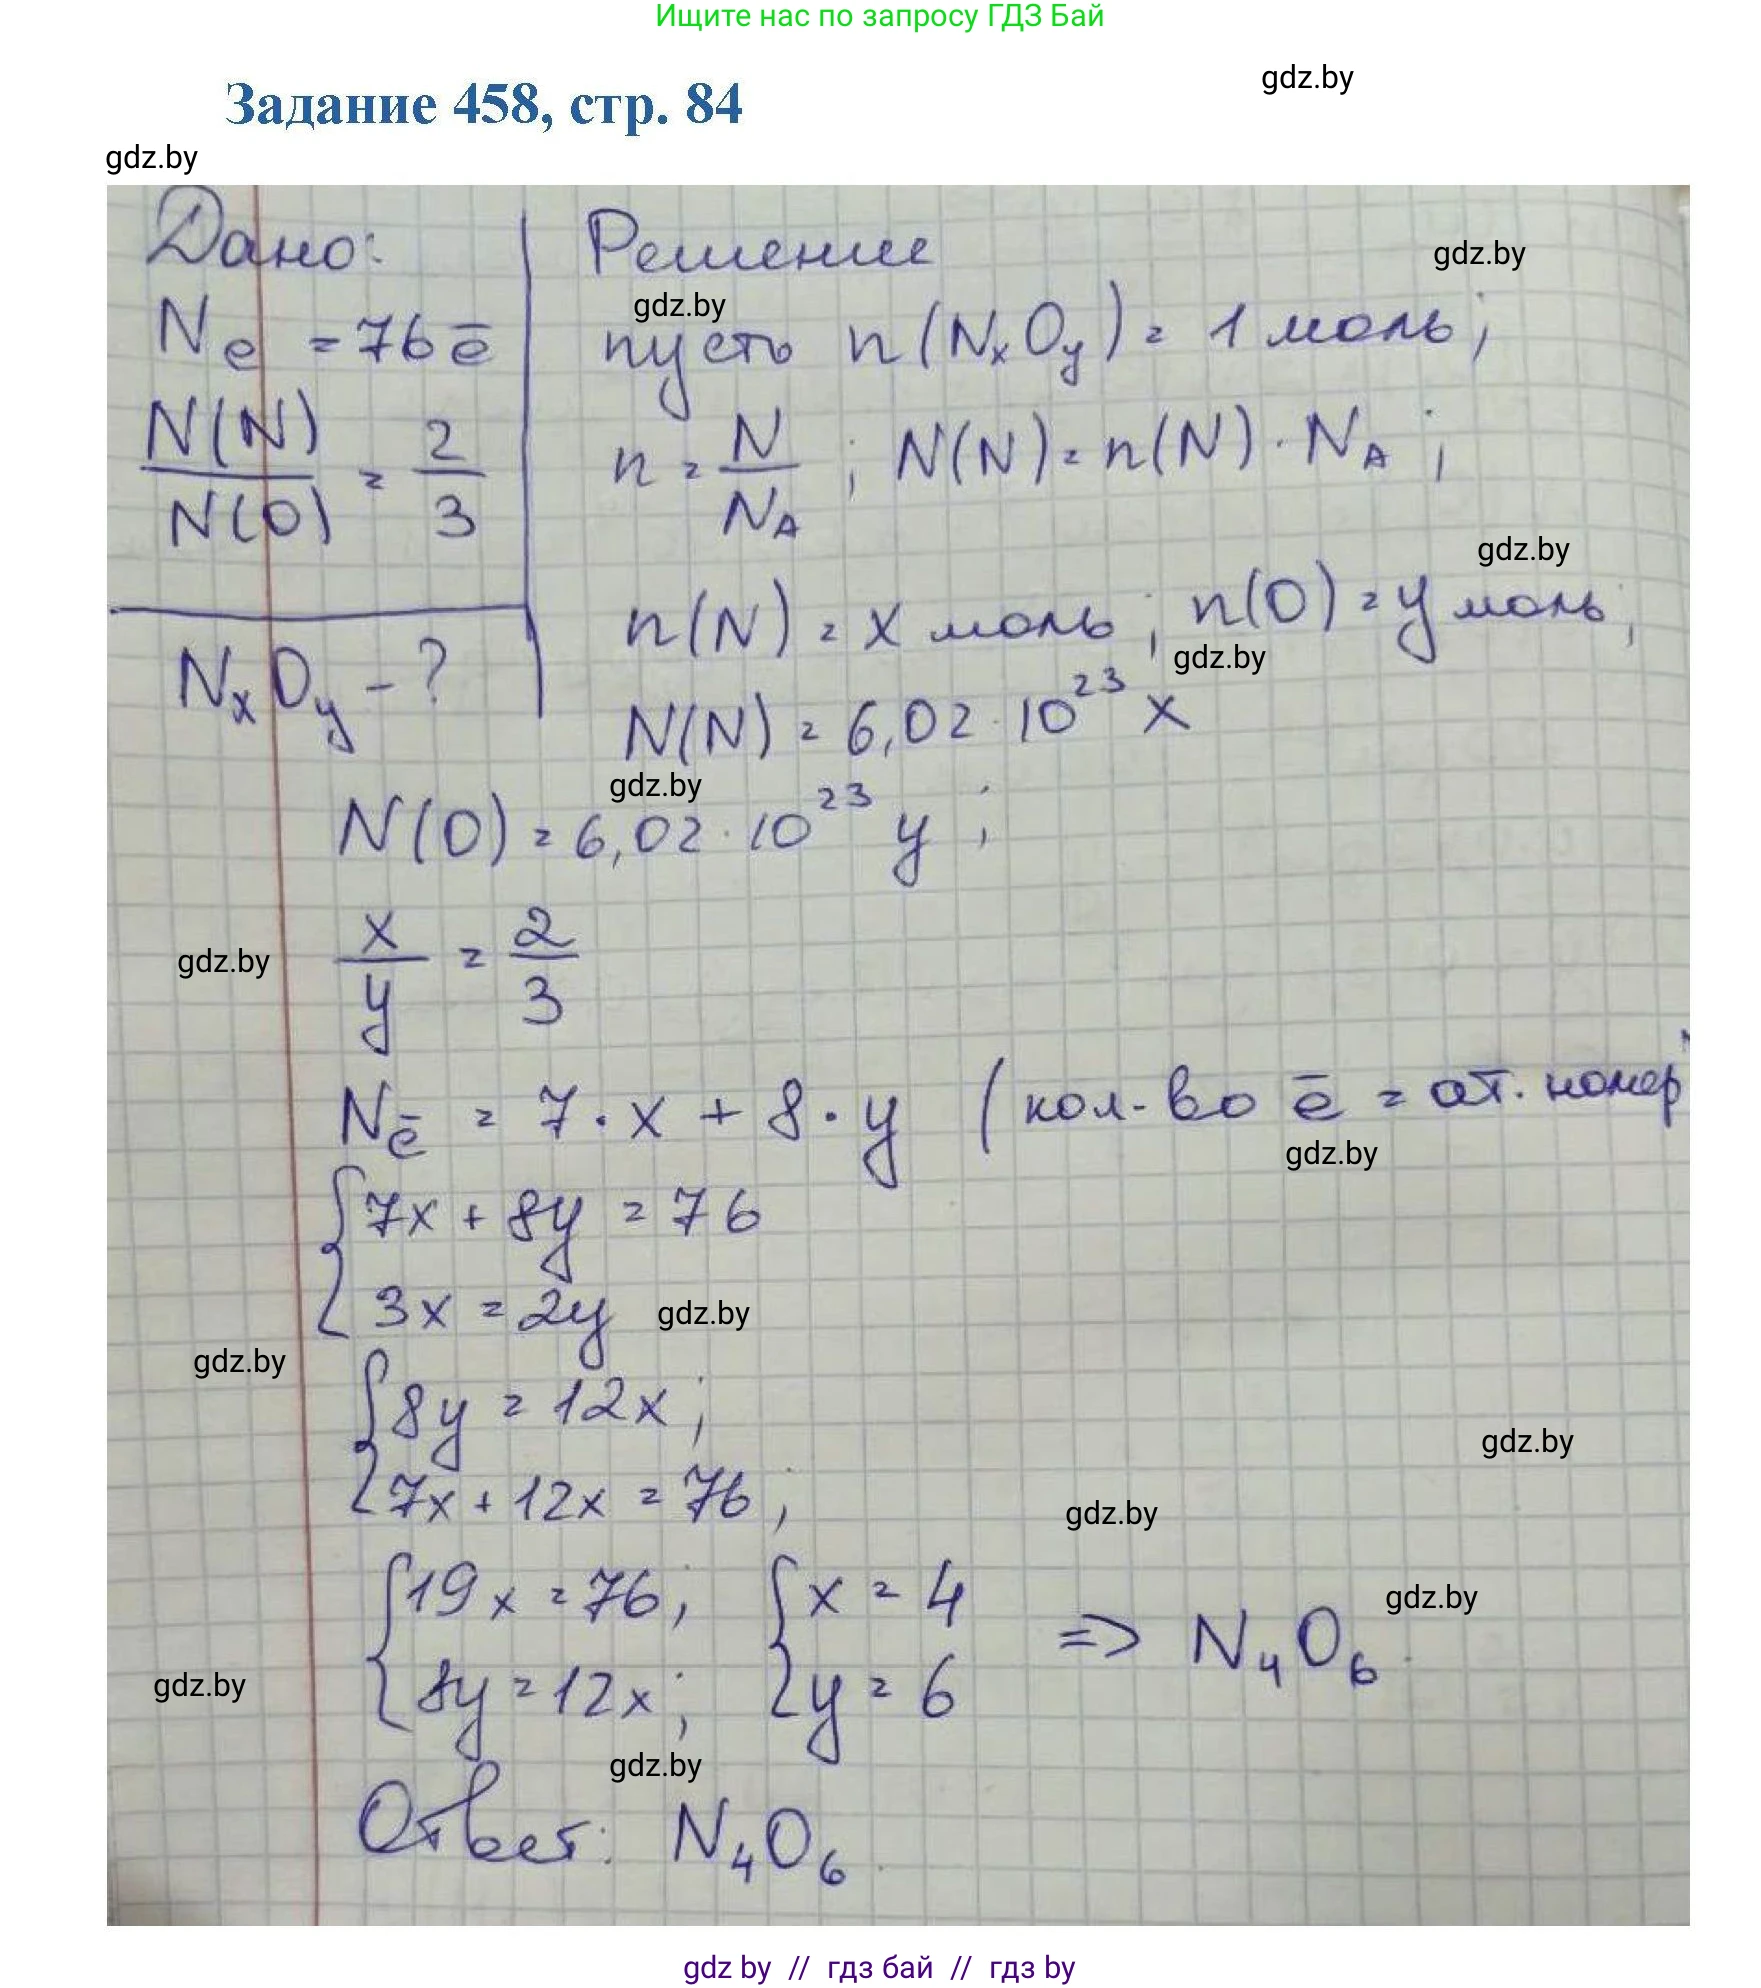 Ищите нас по запросу ГДЗ Бай
gdz.by
Задание 458, стр. 84
gdz.by
Дано:
Nе = 76 ē
N(N)/N(O) = 2/3
NxOy - ?
Решение
gdz.by
gdz.by
пусть n(NxOy) = 1 моль;
n = N/NA ; N(N) = n(N) · NA ;
gdz.by
n(N) = x моль ; n(O) = y моль;
gdz.by
N(N) = 6,02 · 10²³ x
gdz.by
N(O) = 6,02 · 10²³ y ;
x/y = 2/3
gdz.by
Nē = 7 · x + 8 · y (кол-во ē = ат. номер
gdz.by
{7x + 8y = 76
3x = 2y
gdz.by
gdz.by
{8y = 12x ;
7x + 12x = 76 ;
gdz.by
gdz.by
{19x = 76; {x = 4
8y = 12x; y = 6
=> N₄O₆.
gdz.by
gdz.by
gdz.by
Ответ: N₄O₆.
gdz by // гдз бай // гдз by